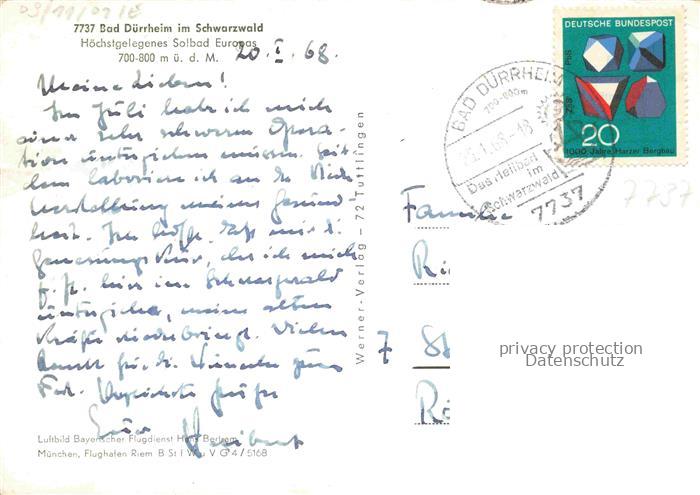 03/11/01 E
7737 Bad Dürrheim im Schwarzwald
Höchstgelegenes Solbad Europas
700-800 m ü. d. M.
20. I. 68.
Meine Lieben!
Im Juli habe ich mich
einer sehr schweren Opera-
tion unterziehen müssen. Seit-
dem laboriere ich an der Wieder-
herstellung meiner Gesund-
heit. Ich hoffe, daß mir d.
Genesungskur, der ich mich
z. Zt. hier im Schwarzwald
unterziehe, meine alten
Kräfte wiederbringt. Vielen
Dank für d. Wünsche zum
Fest. Herzlichste Grüße
Euer
Luftbild Bayerischer Flugdienst Hans Bertram
München, Flughafen Riem B St I W u V G 4/5168
Werner-Verlag - 72 Tuttlingen
DEUTSCHE BUNDESPOST
PbS
ZnS
20
1000 Jahre Harzer Bergbau
BAD DÜRRHEIM
700-800m
1.68-18
Das Heilbad
im
Schwarzwald
7737
7737
Familie
Ri
7 St
privacy protection
Datenschutz